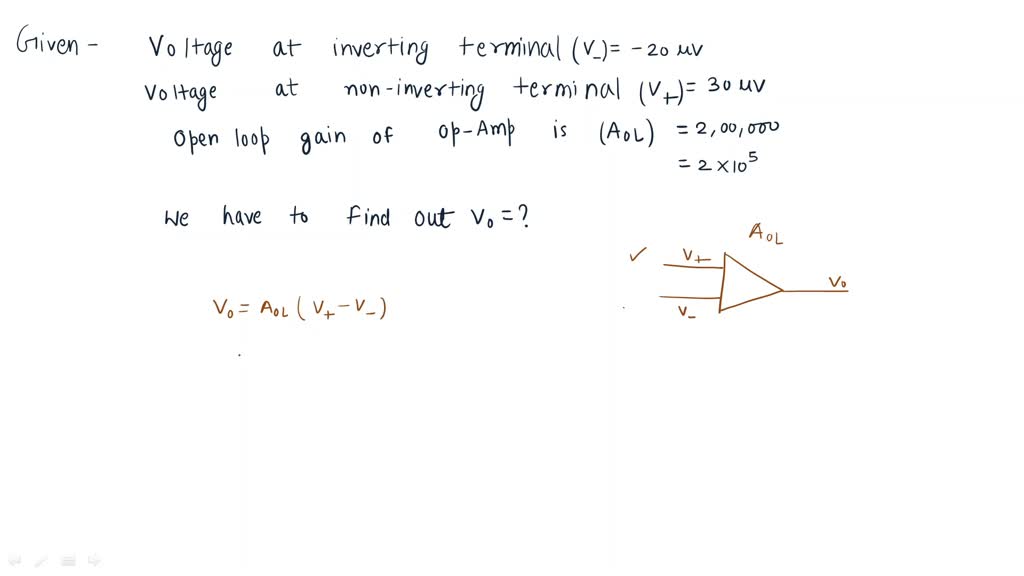 Given - Voltage at inverting terminal (V-) = -20 μV
Voltage at non-inverting terminal (V+) = 30 μV
Open loop gain of Op-Amp is (AOL) = 2,00,000
= 2 × 10^5
We have to find out Vo = ?
AOL
V+
Vo
V-
Vo = AOL (V+ - V-)